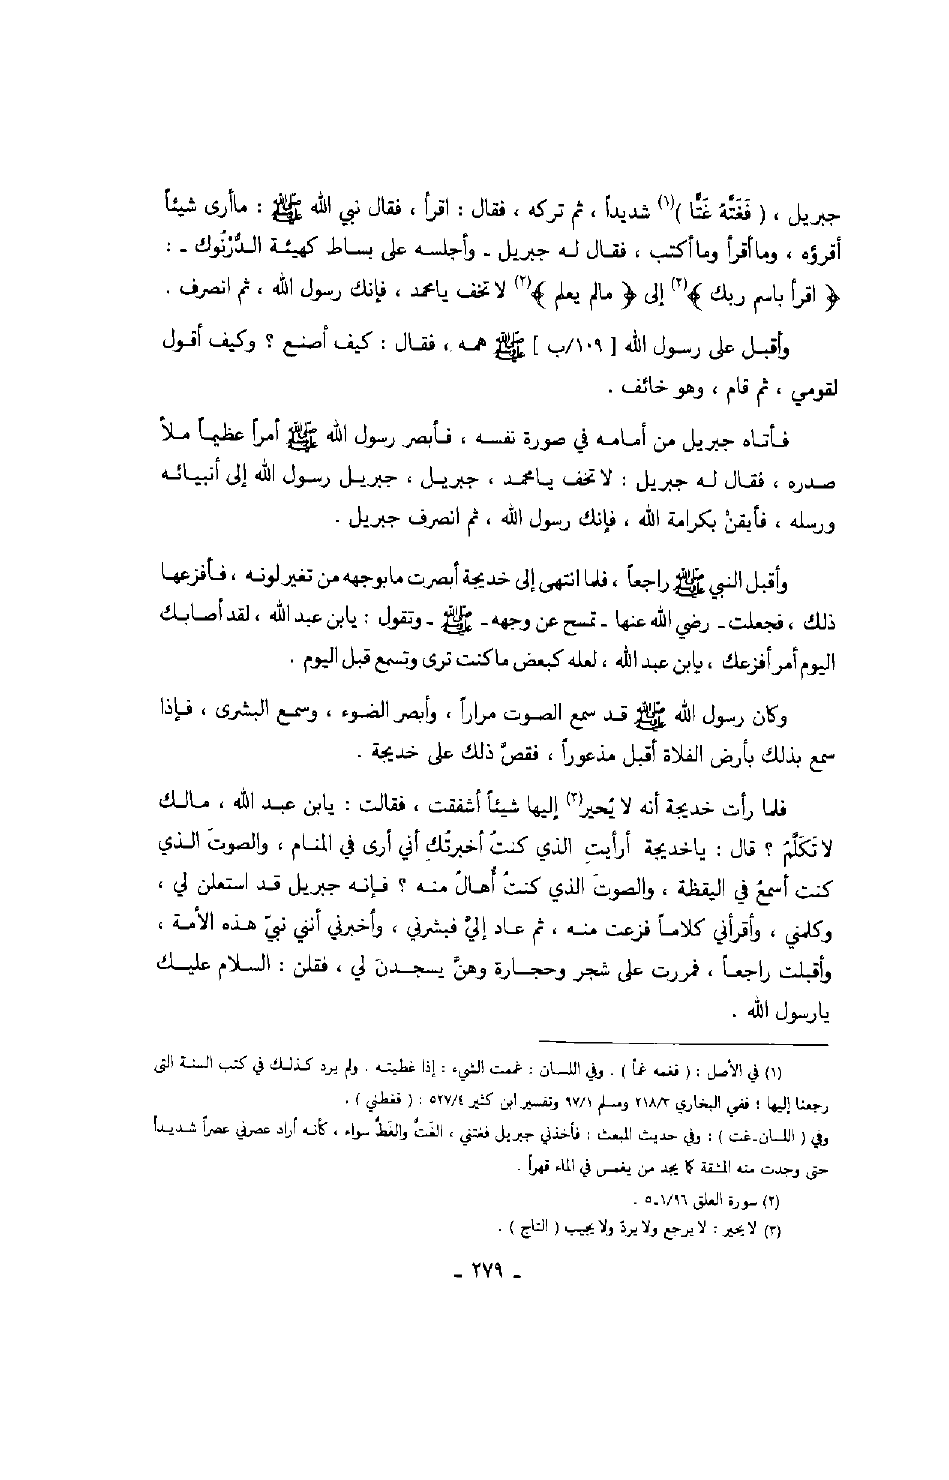 جبريل ، ( فَغَتَّهُ غَتًّا )(١) شديداً ، ثم تركه ، فقال : اقرأ ، فقال نبي الله ﷺ : ماأرى شيئاً
أقرؤه ، وماأقرأ وماأكتب ، فقال له جبريل ـ وأجلسه على بساط كهيئة الدُّرْنُوك ـ :
﴿ اقرأ باسم ربك ﴾(٢) إلى ﴿ مالم يعلم ﴾(٢) لا تخف يامحمد ، فإنك رسول الله ، ثم انصرف .
وأقبل على رسول الله [ ١٠٩/ب ] ﷺ همه ، فقال : كيف أصنع ؟ وكيف أقول
لقومي ، ثم قام ، وهو خائف .
فأتاه جبريل من أمامه في صورة نفسه ، فأبصر رسول الله ﷺ أمراً عظيماً ملأ
صدره ، فقال له جبريل : لا تخف يامحمد ، جبريل ، جبريل رسول الله إلى أنبيائه
ورسله ، فأيقنْ بكرامة الله ، فإنك رسول الله ، ثم انصرف جبريل .
وأقبل النبي ﷺ راجعاً ، فلما انتهى إلى خديجة أبصرت مابوجهه من تغير لونه ، فأفزعها
ذلك ، فجعلت ـ رضي الله عنها ـ تمسح عن وجهه ـ ﷺ ـ وتقول : يابن عبد الله ، لقد أصابك
اليوم أمر أفزعك ، يابن عبد الله ، لعله كبعض ماكنت ترى وتسمع قبل اليوم .
وكان رسول الله ﷺ قد سمع الصوت مراراً ، وأبصر الضوء ، وسمع البشرى ، فإذا
سمع بذلك بأرض الفلاة أقبل مذعوراً ، فقصّ ذلك على خديجة .
فلما رأت خديجة أنه لا يُحير(٣) إليها شيئاً أشفقت ، فقالت : يابن عبد الله ، مالك
لا تَكَلَّمُ ؟ قال : ياخديجة أرأيتِ الذي كنتُ أخبرتُكِ أني أرى في المنام ، والصوتَ الذي
كنت أسمعُ في اليقظة ، والصوتَ الذي كنتُ أُهالُ منه ؟ فإنه جبريل قد استعلن لي ،
وكلمني ، وأقرأني كلاماً فزعت منه ، ثم عاد إليّ فبشرني ، وأخبرني أنني نبيّ هذه الأمة ،
وأقبلت راجعاً ، فمررت على شجر وحجارة وهنَّ يسجدنَ لي ، فقلن : السلام عليك
يارسول الله .
(١) في الأصل : ( فغمه غماً ) . وفي اللسان : غممت الشيء : إذا غطيته . ولم يرد كذلك في كتب السنة التي
رجعنا إليها ؛ ففي البخاري ٢١٨/٣ ومسلم ٩٧/١ وتفسير ابن كثير ٥٢٧/٤ : ( فغطني ) .
وفي ( اللسان ـ غت ) : وفي حديث المبعث : فأخذني جبريل فغتني ، الغتُّ والغطُّ سواء ، كأنه أراد عصرني عصراً شديداً
حتى وجدت منه المشقة كما يجد من يغمس في الماء قهراً .
(٢) سورة العلق ١/٩٦ـ٥ .
(٣) لا يحير : لا يرجع ولا يردّ ولا يجيب ( التاج ) .
ـ ٢٧٩ ـ